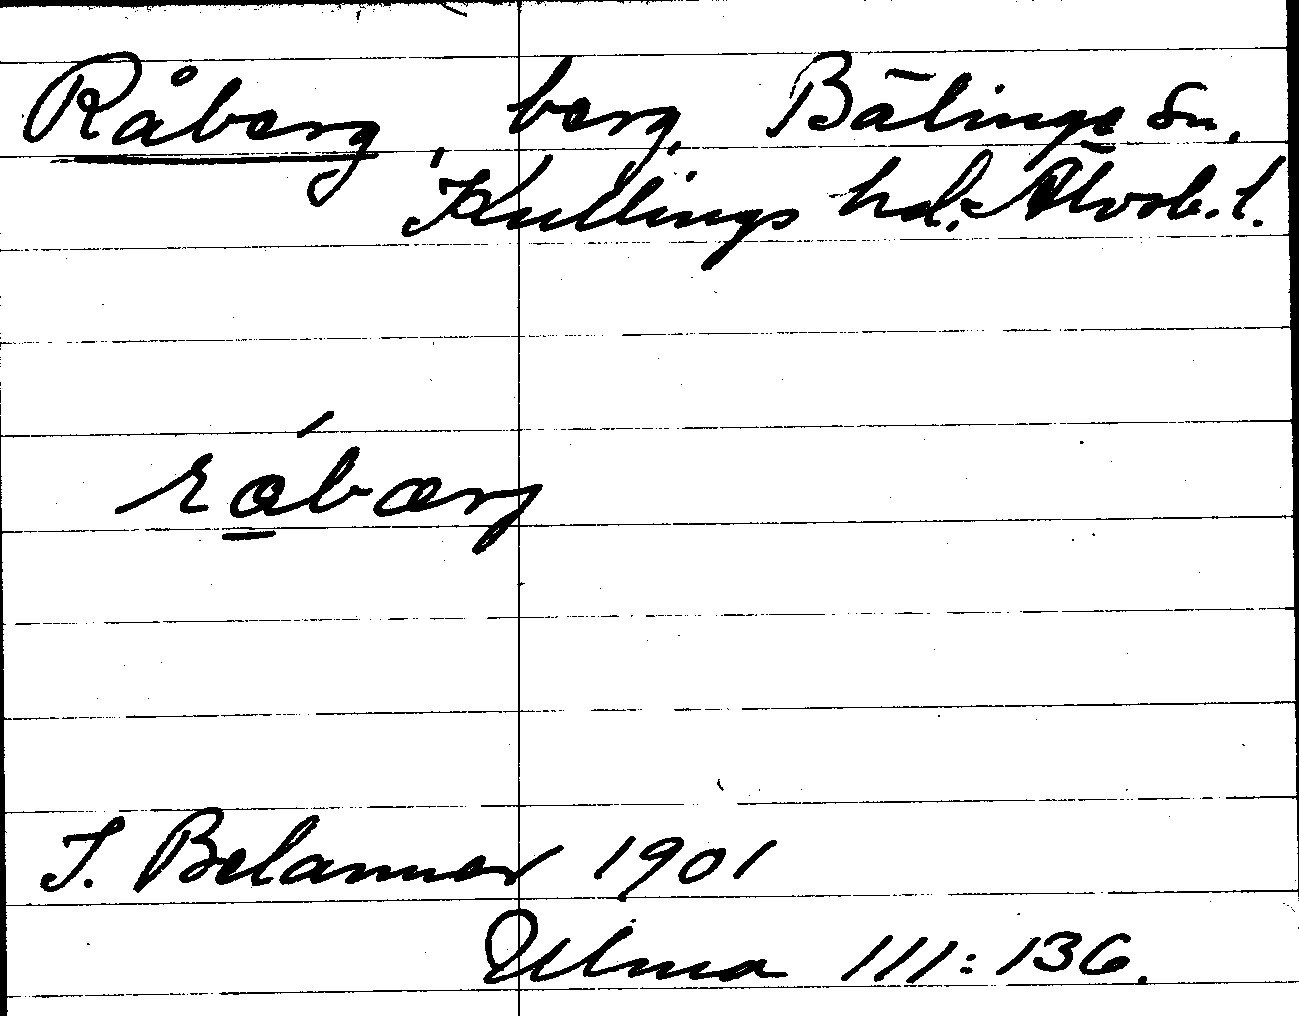 Råberg, berg, Bälinge sn,
Kullings hd, Älvsb. l.
råbærg
T. Belanner 1901
Ulma 111:136.